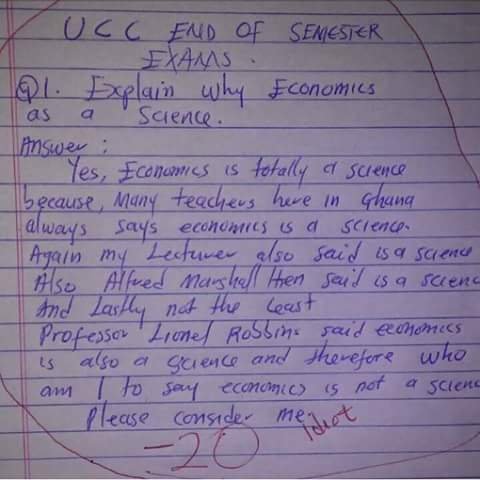 UCC END OF SEMESTER
EXAMS.
Q1. Explain why Economics
as a Science.
Answer:
Yes, Economics is totally a science
because, Many teachers here in Ghana
always says economics is a science.
Again my Lecturer also said is a science
Also Alfred Marshall then said is a scienc
And Lastly not the least
Professor Lionel Robbins said economics
is also a science and therefore who
am I to say economics is not a scienc
Please consider me
Idiot
-20